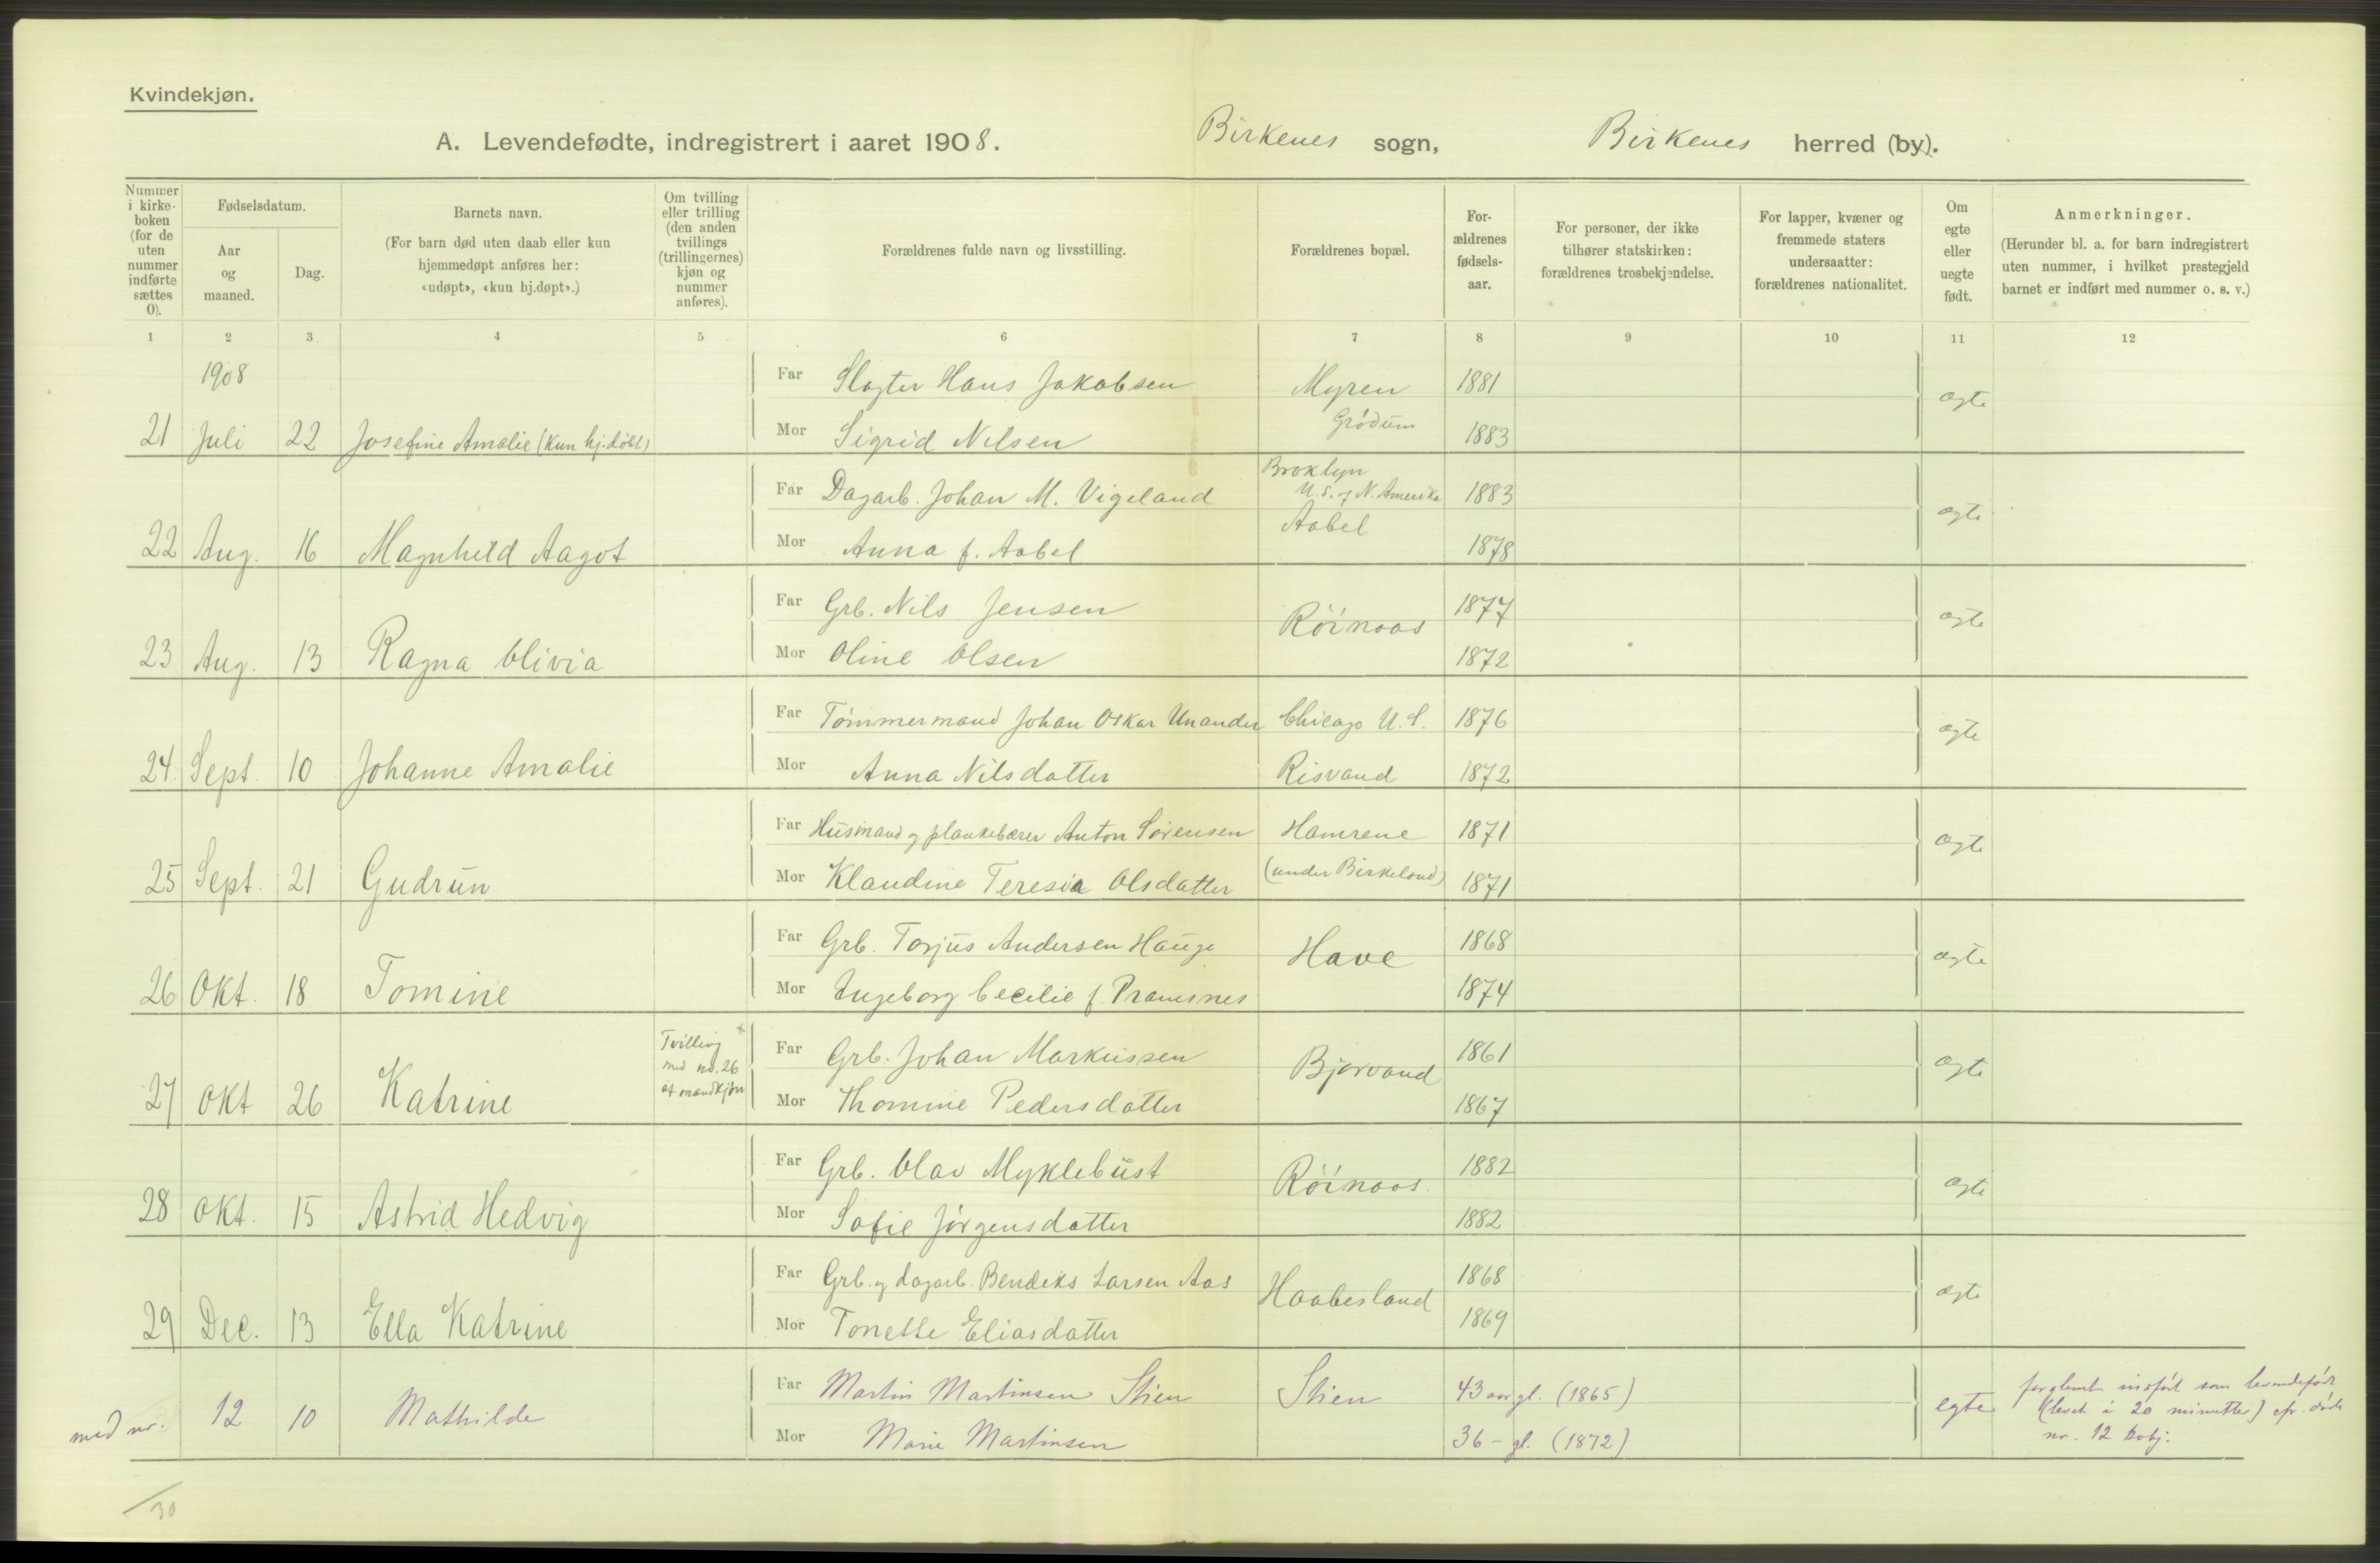 Kvindekjøn.
A. Levendefødte, indregistrert i aaret 1908. Birkenes sogn, Birkenes herred (by).
Nummer i kirke-boken (for de uten nummer indførte sættes 0).
Fødselsdatum.
Aar og maaned.
Dag.
Barnets navn.
(For barn død uten daab eller kun hjemmedøpt anføres her: «udøpt», «kun hj.døpt».)
Om tvilling eller trilling (den anden tvillings (trillingernes) kjøn og nummer anføres).
Forældrenes fulde navn og livsstilling.
Forældrenes bopæl.
For-ældrenes fødsels-aar.
For personer, der ikke tilhører statskirken: forældrenes trosbekjendelse.
For lapper, kvæner og fremmede staters undersaatter: forældrenes nationalitet.
Om egte eller uegte født.
Anmerkninger.
(Herunder bl. a. for barn indregistrert uten nummer, i hvilket prestegjeld barnet er indført med nummer o. s. v.)
1 2 3 4 5 6 7 8 9 10 11 12
1908 Far Slagter Hans Jakobsen Myren 1881 ægte
21 Juli 22 Josefine Amalie (kun hj.døbt) Mor Sigrid Nilsen Grødum 1883
Far Dagarb. Johan M. Vigeland Broklyn U.S. of N. Amerika 1883 ægte
22 Aug. 16 Magnhild Aagot Mor Anna f. Aabel Aabel 1878
Far Grb. Nils Jensen Röinaas 1877 ægte
23 Aug. 13 Ragna Olivia Mor Oline Olsen 1872
Far Tömmermand Johan Oskar Unander Chicago U.S. 1876 ægte
24 Sept. 10 Johanne Amalie Mor Anna Nilsdatter Risvand 1872
Far Husmand og plankebærer Anton Sörensen Hamrene 1871 ægte
25 Sept. 21 Gudrun Mor Klaudine Teresia Olsdatter (under Birkeland) 1871
Far Grb. Torjus Andersen Hauge Have 1868 ægte
26 Okt. 18 Tomine Mor Ingeborg Cecilie f. Pramsnes 1874
Tvilling + med no. 26 af mandkjøn Far Grb. Johan Markussen Bjorvand 1861 ægte
27 Okt 26 Katrine Mor Thomine Pedersdatter 1867
Far Grb. Olav Myklebust Röinaas. 1882 ægte
28 Okt. 15 Astrid Hedvig Mor Sofie Jörgensdatter 1882
Far Grb. og dagarb. Bendiks Larsen Aas Haabesland 1868 ægte
29 Dec. 13 Ella Katrine Mor Tonette Eliasdatter 1869
Far Martin Martinsen Stien Stien 43 aar gl. (1865) egte forglemt indført som levendefødt
med nr. 12 10 Mathilde (levet i 20 minutter) cfr. døde
Mor Marie Martinsen 36 - gl. (1872) nr. 12 kvkj.
30